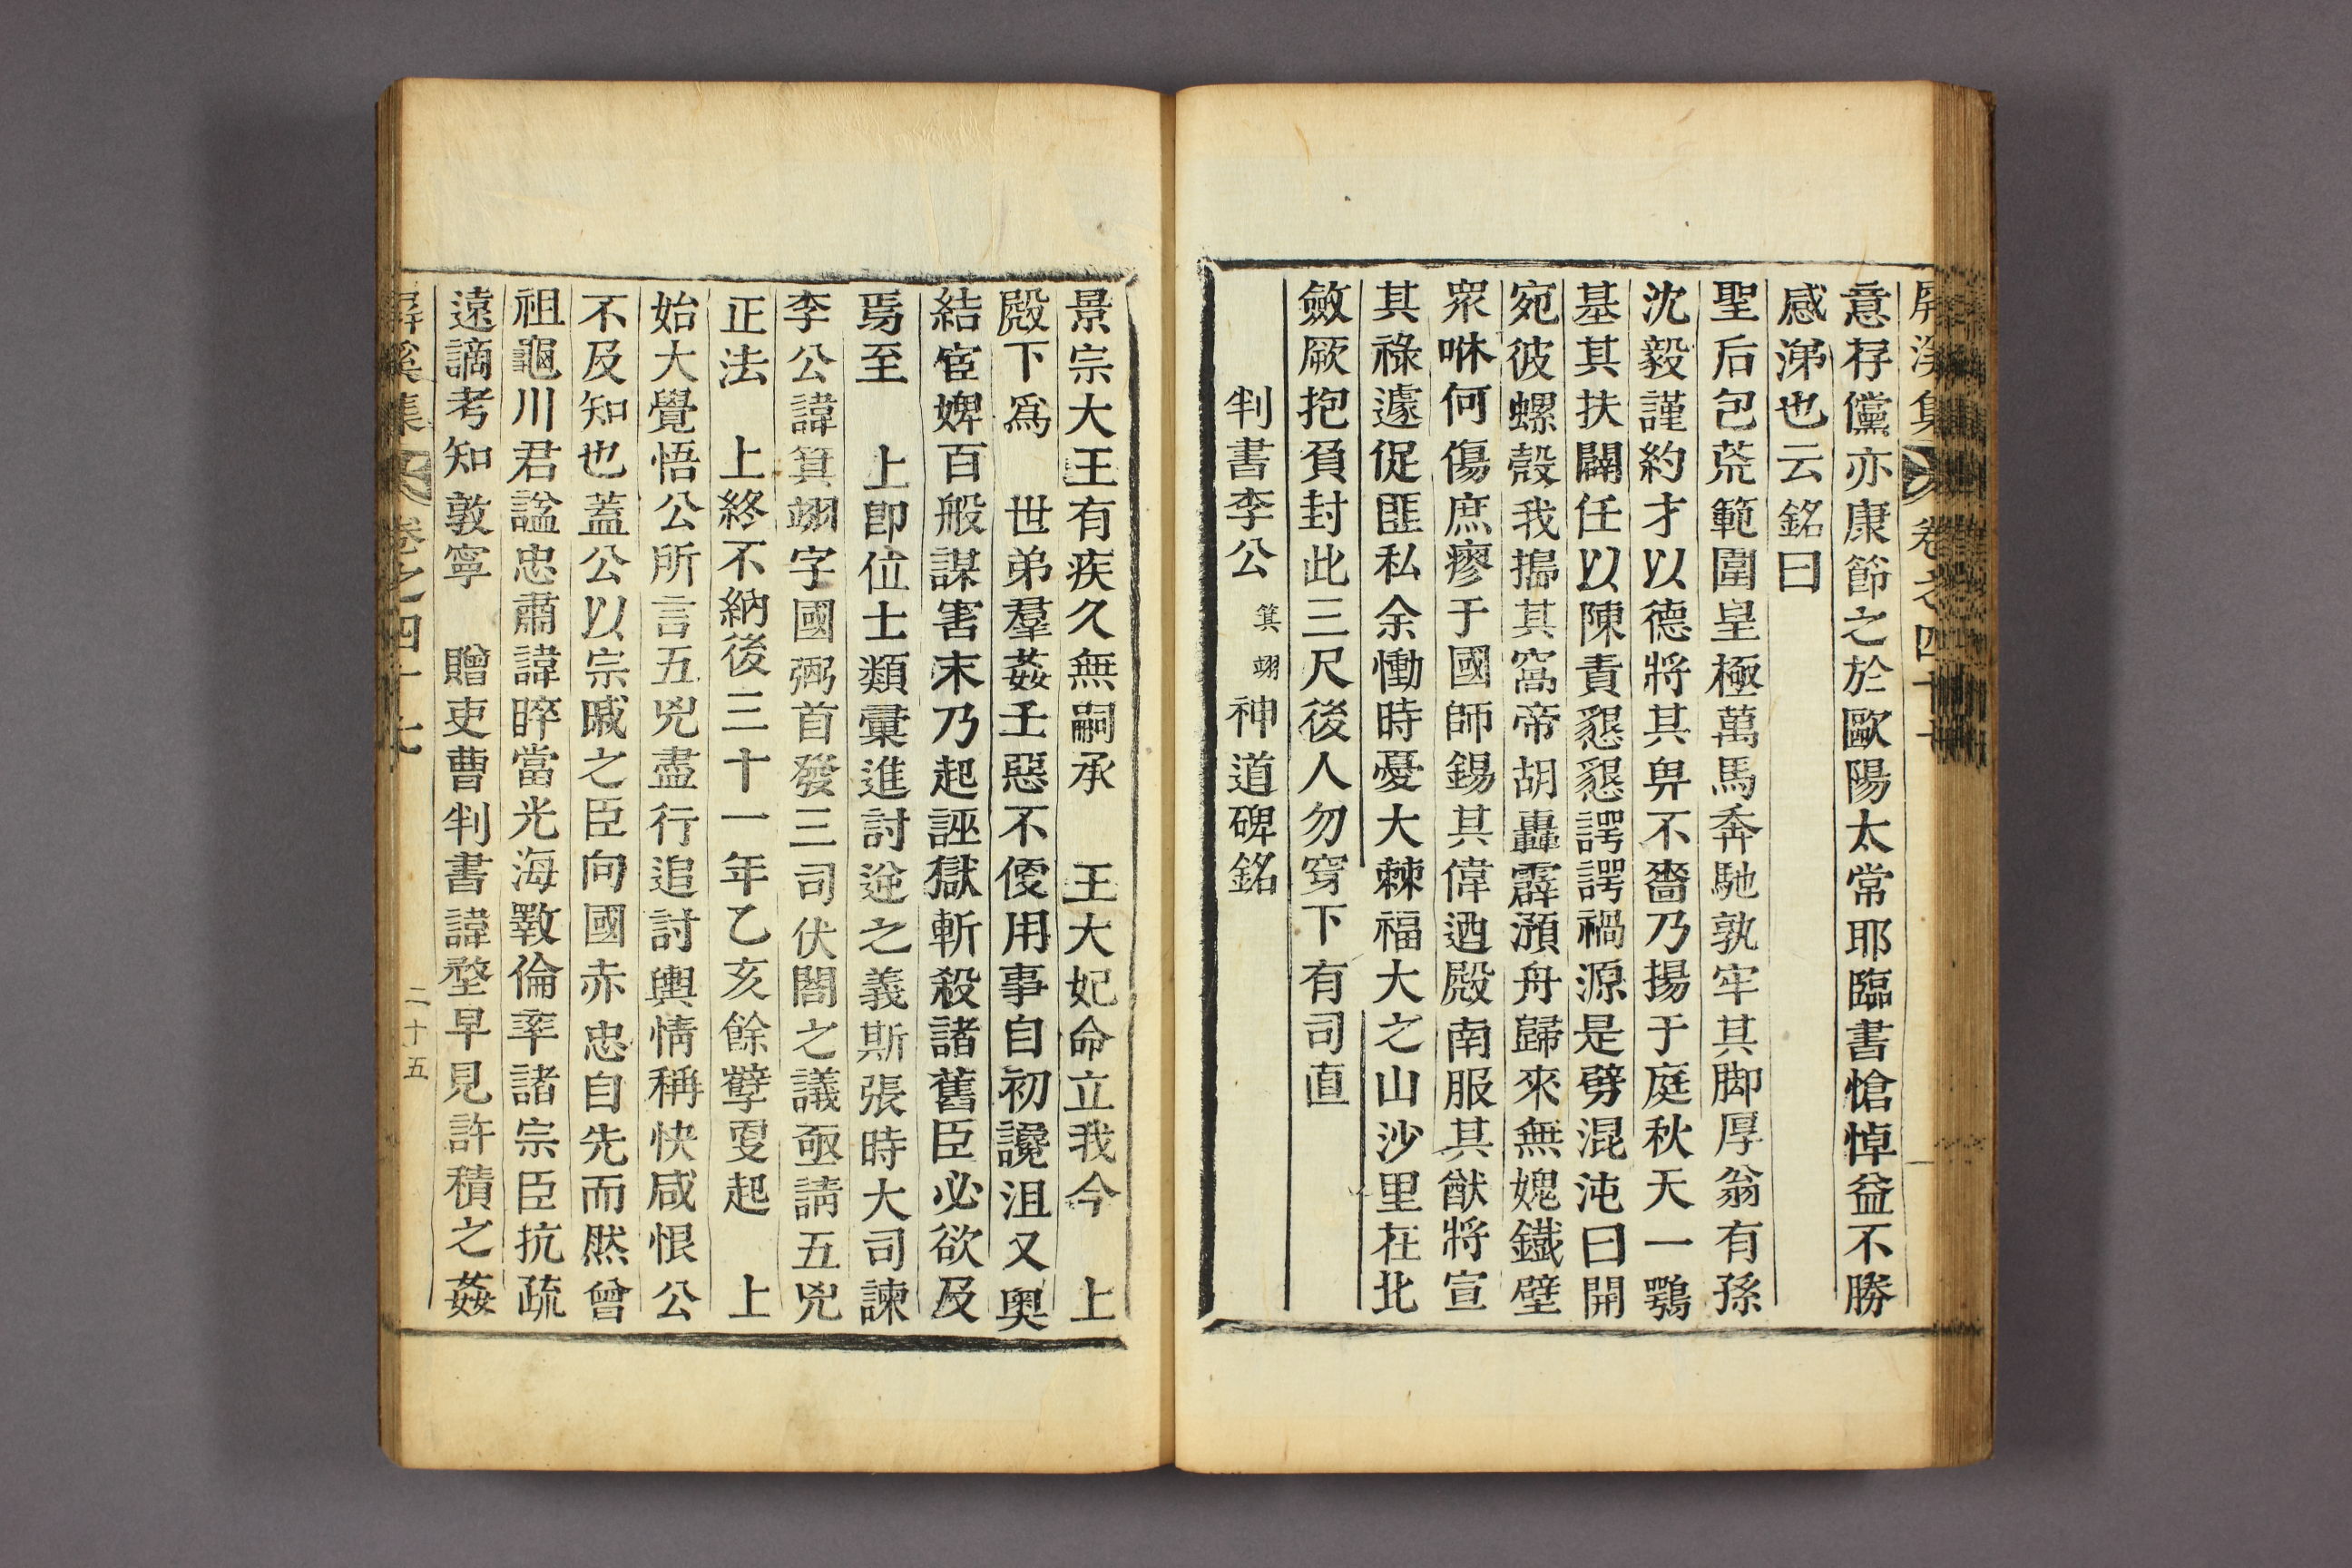 屛溪集 卷之四十七
意存儻亦康節之於歐陽太常耶臨書愴悼益不勝
感涕也云銘曰
聖后包荒範圍皇極萬馬奔馳孰牢其脚厚翁有孫
沈毅謹約才以德將其畀不嗇乃揚于庭秋天一鶚
基其扶闢任以陳責懇懇諤諤禍源是劈混沌日開
宛彼螺殼我搗其窩帝胡轟霹瀕舟歸來無媿鐵壁
衆咻何傷庶瘳于國師錫其偉迺殿南服其猷將宣
其祿遽促匪私余慟時憂大棘福大之山沙里在北
斂厥抱負封此三尺後人勿穿下有司直
判書李公 箕翊 神道碑銘
景宗大王有疾久無嗣承 王大妃命立我今 上
殿下爲 世弟羣姦壬惡不便用事自初讒沮又奧
結宦婢百般謀害末乃起誣獄斬殺諸舊臣必欲及
焉至 上卽位士類彙進討逆之義斯張時大司諫
李公諱箕翊字國弼首發三司伏閤之議亟請五兇
正法 上終不納後三十一年乙亥餘孼變起 上
始大覺悟公所言五兇盡行追討輿情稱快咸恨公
不及知也蓋公以宗戚之臣向國赤忠自先而然曾
祖龜川君謚忠肅諱睟當光海斁倫率諸宗臣抗疏
遠謫考知敦寧 贈吏曹判書諱㙜早見許積之姦
屛溪集 卷之四十七 二十五